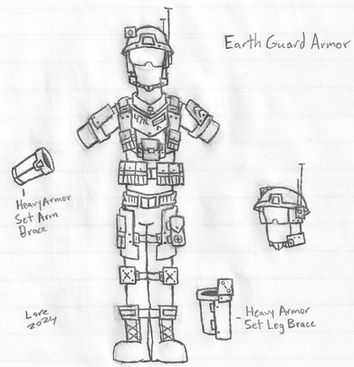 Earth Guard Armor
Heavy Armor
Set Arm
Brace
Lore
2024
- Heavy Armor
Set Leg Brace